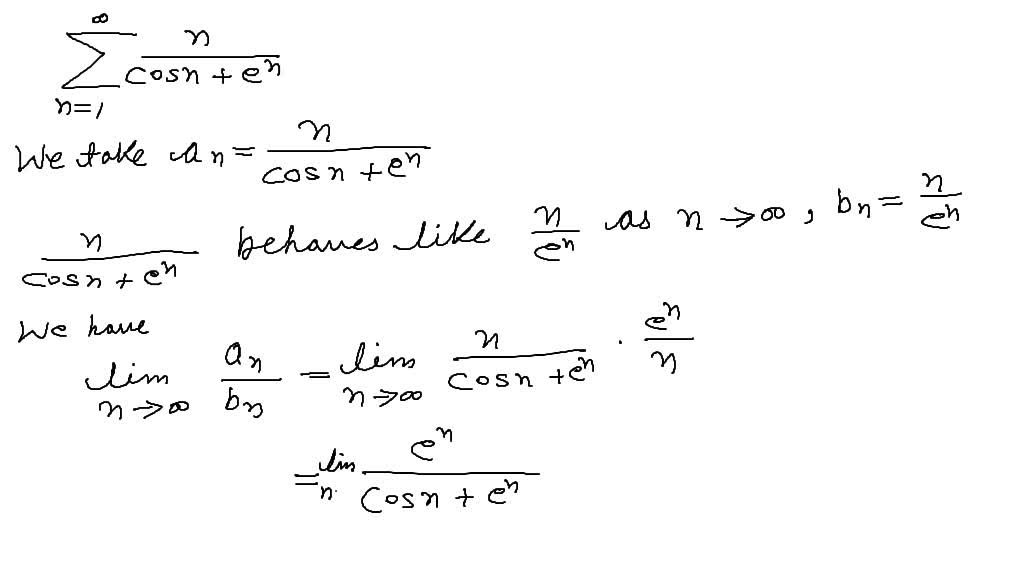 ∞
∑ n/(cosn + eⁿ)
n=1
We take aₙ = n/(cosn + eⁿ)
n/(cosn + eⁿ) behaves like n/eⁿ as n → ∞, bₙ = n/eⁿ
We have
lim n→∞ aₙ/bₙ = lim n→∞ n/(cosn + eⁿ) · eⁿ/n
= lim n eⁿ/(cosn + eⁿ)